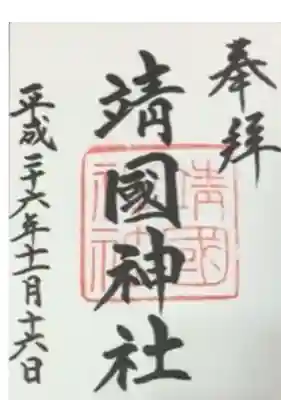 奉拜
靖國神社
平成二十六年十一月十六日
靖國
神社